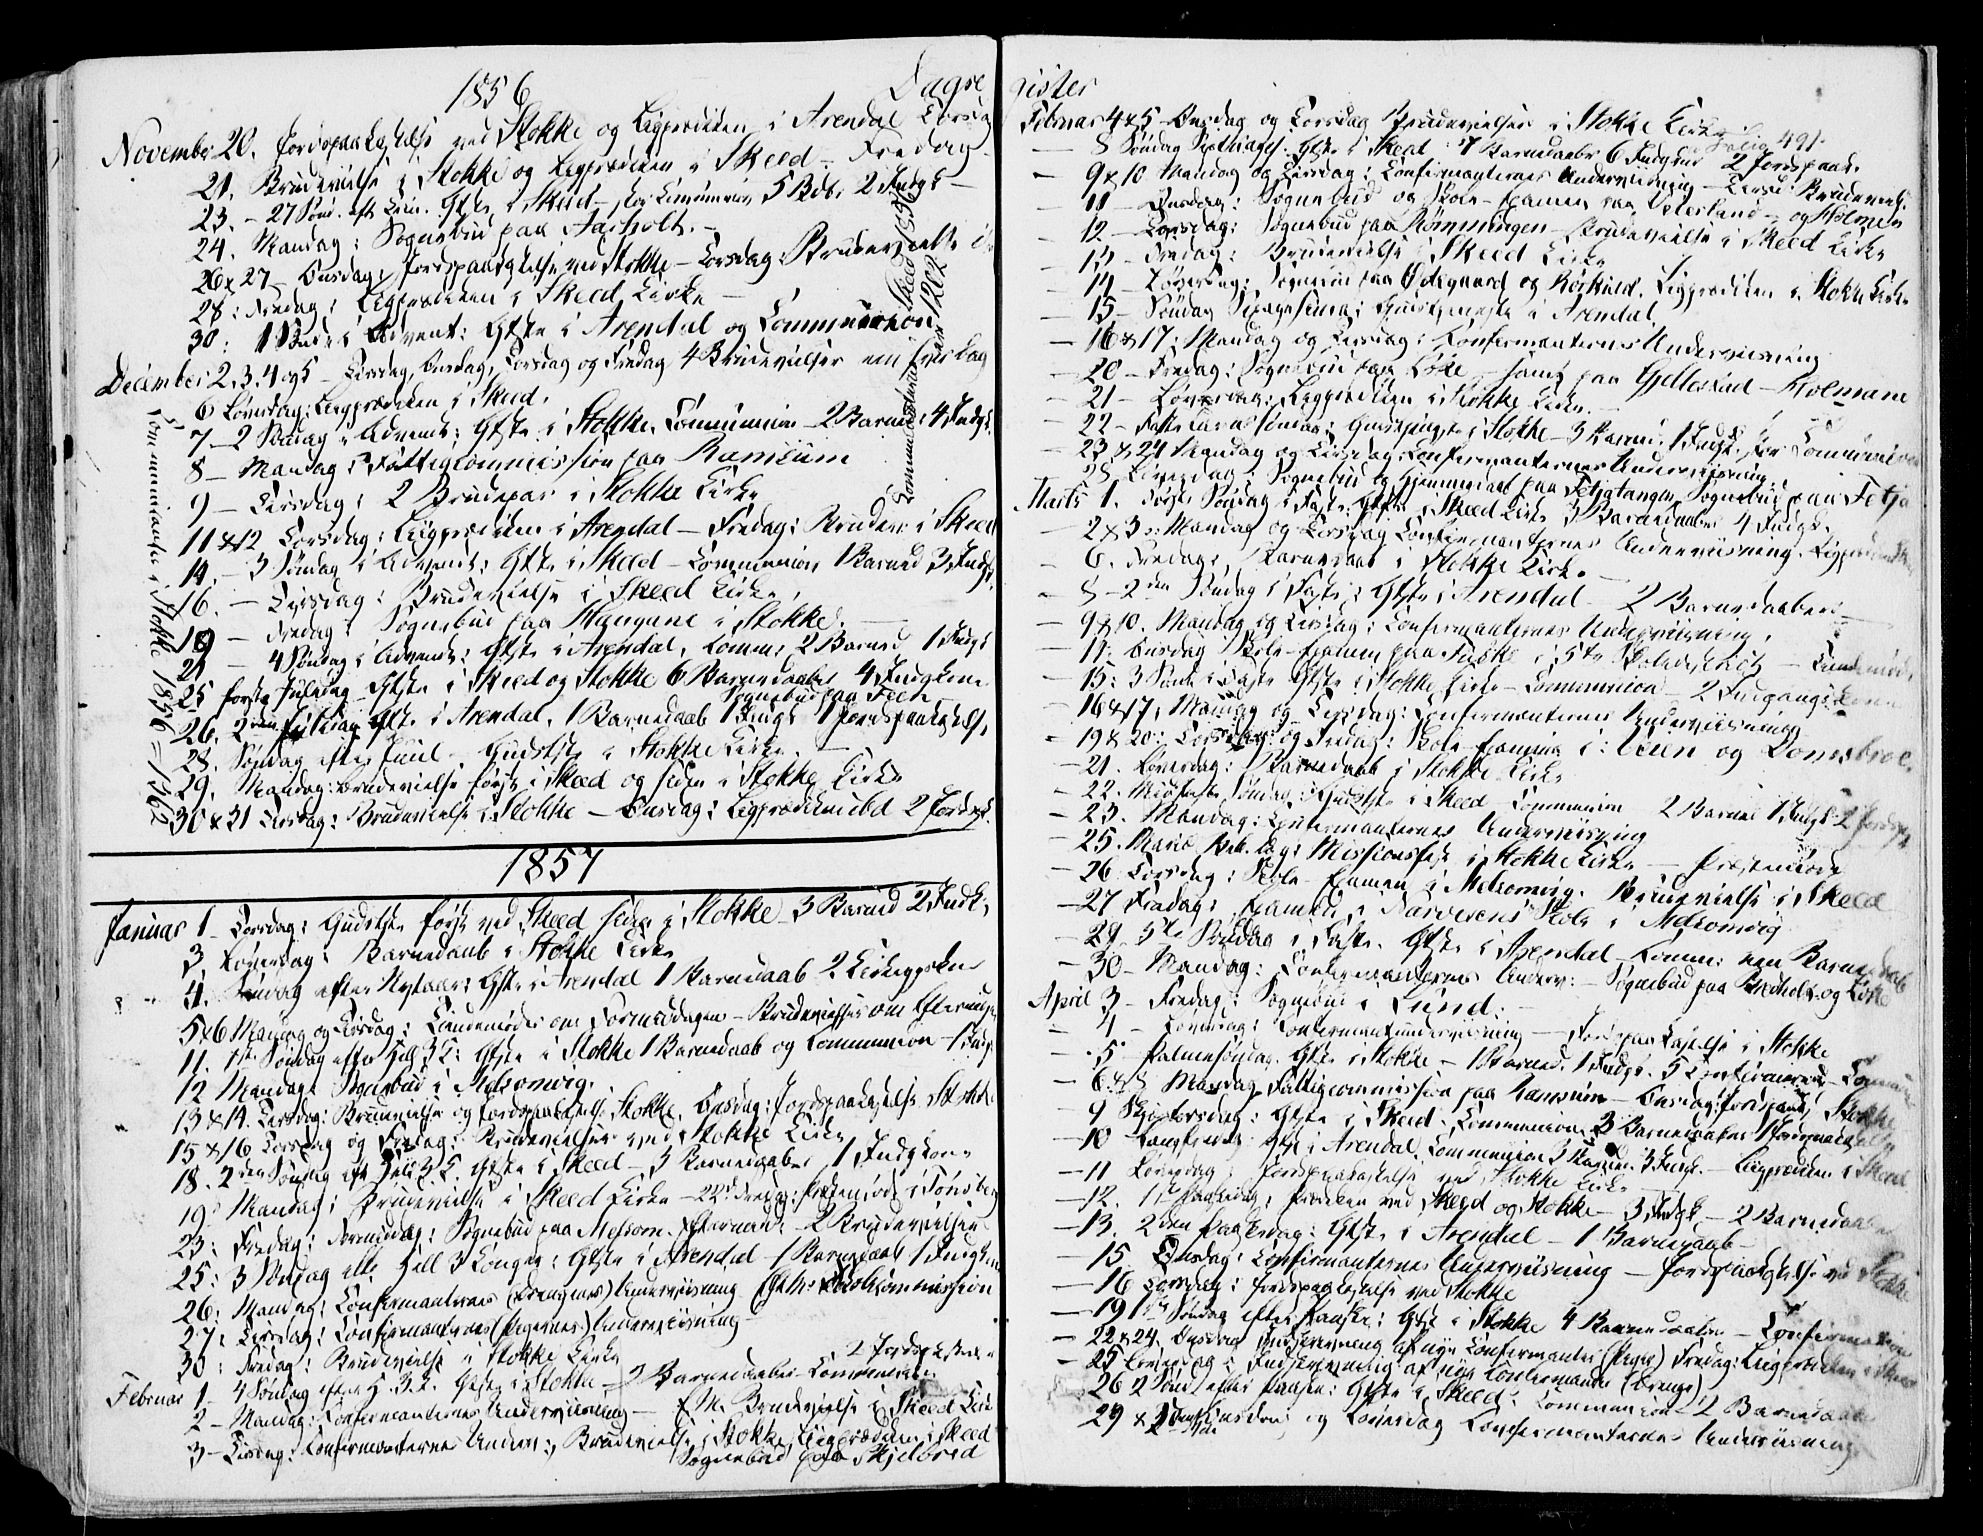 1856
Dagre
November 20. Jordspaakastelse ved Stokke og Ligprædiken i Arendal Torsdag
21. Brudevielse i Stokke og Ligprædiken i Skeed – Fredag –
23. – 27 Sønd. eft. Trin. Gtste i Skeed – Communion 5 Bdb. 2 Indgk –
24. Mandag: Sognebud paa Aasholt. –
26 & 27 – Onsdag: Jordspaakastelse ved Stokke – Torsdag: Brudevielse i
28: Fredag: Ligprædiken i Skeed Kirke –
30: 1 Sønd. i Advent: Gtste i Arendal og Communion
December 2. 3. 4 og 5 – Tirsdag, Onsdag, Torsdag og Fredag 4 Brudevielser een hver Dag
6 Løverdag: Ligprædiken i Skeed.
7 – 2 Søndag i Advent: Gtste i Stokke. Communion – 2 Barned. 4 Indgk.
8 – Mandag: Fattigcommission paa Ramsum
9 – Tirsdag: 2 Brudepar i Stokke Kirke
11 & 12 Torsdag: Ligprædiken i Arendal – Fredag: Brudev. i Skeed
14. – 3 Søndag i Advent: Gtste i Skeed – Communion 1 Barned 3 Indgk.
16. – Tirsdag: Brudevielse i Skeed Kirke.
19 – Fredag: Sognebud paa Haugane i Stokke.
21 – 4 Søndag i Advent: Gtste i Arendal, Comm: 2 Barned 1 Indgk
25 første Juledag Gtste i Skeed og Stokke 6 Barnedaaber 4 Indgkone
Sognebud paa Feen
26. 2den Juledag Gtste i Arendal. 1 Barnedaab 1 Indgk 1 Jordspaakastelse,
28. Søndag efter Juul. Gudstste i Stokke Kirke.
29. Mandag: Brudevielse først i Skeed og siden i Stokke Kirke
30 & 31 Tirsdag: Brudevielse i Stokke – Onsdag: Ligprædiken ibd 2 Jordspk.
Communicanter i Stokke 1856 = 1362
Communicanter i Skeed 1856 1202
1857
Januar 1 – Torsdag: Gudstste først ved Skeed siden i Stokke – 3 Barned 2 Indk.
3 Løverdag: Barnedaab i Stokke Kirke
4. Søndag efter Nytaar: Gtste i Arendal 1 Barnedaab 2 Kirkegkone
5 & 6 Mandag og Tirsdag: Tandemøder om Formiddagen – Brudevielser om Eftermid
11. 1ste Søndag efter Hell 3 K: Gtste i Stokke 1 Barnedaab og Communion – 1 Indg.
12 Mandag: Sognebud i Melsomvig.
13 & 14. Tirsdag: Brudevielse og Jordspaakastelse Stokke. Onsdag: Jordspaakastelse Stokke
15 & 16 Torsdag og Fredag: Brudevielser ved Stokke Kirke
18. 2den Søndag eft. Hell 3 K. Gtste i Skeed – 3 Barnedaaber 1 Indgkone
19. Mandag: Brudevielse i Skeed Kirke – 22de Torsdag: Præstemøde i Tønsberg
23: Fredag: Formiddag: Sognebud paa Melsom. Eftermid: 2 Brudevielser
25: 3 Søndag efter Hell 3 Konger: Gtste i Arendal – 1 Barnedaab 1 Indgkone
26: Mandag: Confirmanternes (Drengenes) Underviisning Eftm: Skolecommission
27: Tirsdag: Confirmanternes (Pigernes) Underviisning –
30: Fredag: Brudevielse i Stokke Kirke
2 Jordspk.
Februar 1 – 4 Søndag efter H. 3. K. Gtste i Stokke – 2 Barnedaaber – Communion
2 – Mandag: Confirmanternes Underviisning – E.M. Brudevielse i Skeed Kirke
3 – Tirsdag: Confirmanternes Underv:, Brudevielse i Stokke, Ligprædiken i Skeed
Sognebud paa Skjelbred
gister
Folio 491.
Februar 4 & 5 – Onsdag og Torsdag Brudevielser i Stokke Kirke
– 8 Søndag Septuages. Gtste i Skeed: 7 Barnedaaber 6 Indgkone 2 Jordspaak.
– 9 & 10 Mandag og Tirsdag: Confirmanternes Underviisning – Tirsd. Brudeviel.
– 11 – Onsdag: Sognebud og Skole-Examen paa Vetesland – og Holmen
– 12 – Torsdag: Sognebud paa Rømmingen – Brudevielse i Skeed Kirke
– 13 – Fredag: Brudevielse i Skeed Kirke
– 14 – Løverdag: Sognebud paa Ødegaard og Røskuld. Ligprædiken i Stokke Kirke
– 15 – Søndag Sexagesima: Gudstjeneste i Arendal.
– 16 & 17: Mandag og Tirsdag: Confirmanternes Underviisning
– 20 – Fredag: Sognebud paa Løke – samt paa Gjellestad – Holmane
– 21 – Løverdag: Ligprædiken i Stokke Kirke. –
– 22 – Fastelavnssøndag: Gudstjeneste i Stokke – 3 Barned. 1 Indgk. Communion
– 23 & 24 Mandag og Tirsdag Confirmanternes Underviisning.
– 28 Løverdag: Sognebud og Hjemmedaab paa Fetjatangen, Sognebud paa Fetja
Marts 1. Første Søndag i Faste: Gtste i Skeed Kirke 3 Barnedaaber 4 Indgk.
– 2 & 3: Mandag og Tirsdag Confirmanternes Underviisning.
– 6. Fredag: Barnedaab i Stokke Kirke.
– 8 – 2den Søndag i Faste: Gtste i Arendal – 2 Barnedaaber –
– 9 & 10. Mandag og Tirsdag: Confirmanternes Underviisning.
– 11. Onsdag Skole-Examen paa Fuske i 5te Skoledistrict –
– 15: 3 Sønd. i Faste Gtste i Stokke Kirke – Communion – 2 Indgangskoner
– 16 & 17. Mandag og Tirsdag: Confirmanternes Underviisning
– 19 & 20: Torsdag og Fredag: Skole-Examina i: Veen og Domsbroe.
– 21. Løverdag: Barnedaab i Stokke Kirke
– 22. Midfaste Søndag: Gudstste i Skeed – Communion 2 Barned 1 Indgk 2 Jordspk
– 23. Mandag: Confirmanternes Underviisning
– 25. Mariæ Beb. Dag: Missionsfest i Stokke Kirke – Præstemøde
– 26 Torsdag: Skole-Examen i Melsomvig. Brudevielse i Skeed
– 27 Fredag: Examen i Narverens Skole i Melsomvig
– 29 – 5te Søndag i Faste. Gtste i Arendal – Comm: een Barnedaab
– 30 – Mandag: Confirmanternes Underv: – Sognebud paa Bredholt og Løke
April 3 – Fredag: Sognebud i Lund.
– 4 – Løverdag: Confirmantunderviisning – Jordspaakastelse i Stokke
– 5 – Palmesøndag. Gtste i Stokke – 1 Barned. 1 Indgk. 5 Confirmand – Comm
– 6 & 8 Mandag Fattigcommission paa Ramsum – Onsdag: Jordspaak, Stokke
– 9 Skjertorsdag: Gtste i Skeed: Communion 3 Barnedaaber 1 Jordspaakastelse
– 10 Langfredag: Gtste i Arendal. Communion 3 Barned. 3 Indgk. – Ligprædiken i Skeed
– 11 Løverdag: Jordspaakastelse ved Stokke Kirke
– 12. 1ste Paaskedag: Prædiken ved Skeed og Stokke – 3 Indgk – 2 Barnedaaber
– 13. 2den Paaskedag: Gtste i Arendal – 1 Barnedaab –
– 15 Onsdag: Confirmanternes Underviisning – Jordspaakastelse ved Stokke
– 16 Torsdag: Jordspaakastelse ved Stokke
– 19 1ste Søndag efter Paaske: Gtste i Stokke 4 Barnedaaber – Confirmation
– 22 & 24. Onsdag Indskrivning af nye Confirmanter (Piger) Fredag: Ligprædiken i Skeed
– 25 Løverdag: Indskrivning af nye Confirmander (Drenge)
– 26 2 Sønd. efter Paaske: Gtste i Skeed: Communion – 2 Barnedaab
– 29 & 2den Mai Onsdag og Løverdag Confirmanternes Underviisning